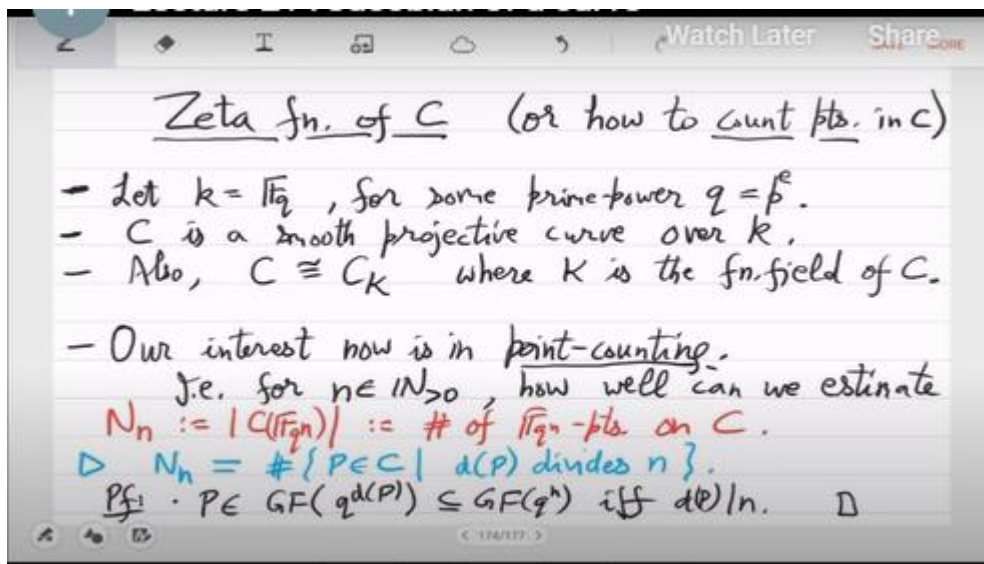 Watch Later Share
MORE
Zeta fn. of C (or how to count pts. in C)
- Let k = 𝔽q , for some prime-power q = pᵉ.
- C is a smooth projective curve over k.
- Also, C ≅ C_K where K is the fn. field of C.
- Our interest now is in point-counting.
I.e. for n ∈ ℕ>0 , how well can we estimate
Nₙ := |C(𝔽qⁿ)| := # of 𝔽qⁿ-pts. on C.
▷ Nₙ = #{P∈C | d(P) divides n}.
Pf: · P∈ GF(q^d(P)) ⊆ GF(qⁿ) iff d(P)|n. □
< 174/177 >